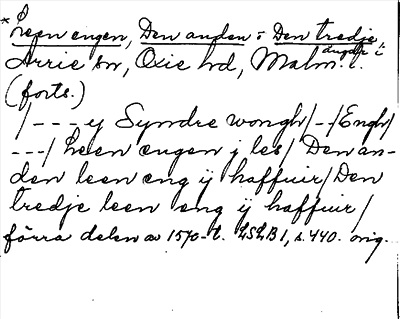 * Leen engen, Den anden o Den tredje
ängen i
Arrie sn, Oxie hd, Malm. l.
(forts.)
/--- y Syndre wongh/--/Engh/
---/ Leen engen j les/ Den an-
den leen eng ij haffuir/Den
tredje leen eng ij haffuir/
förra delen av 1570-t. LSLB1, s. 440. orig.